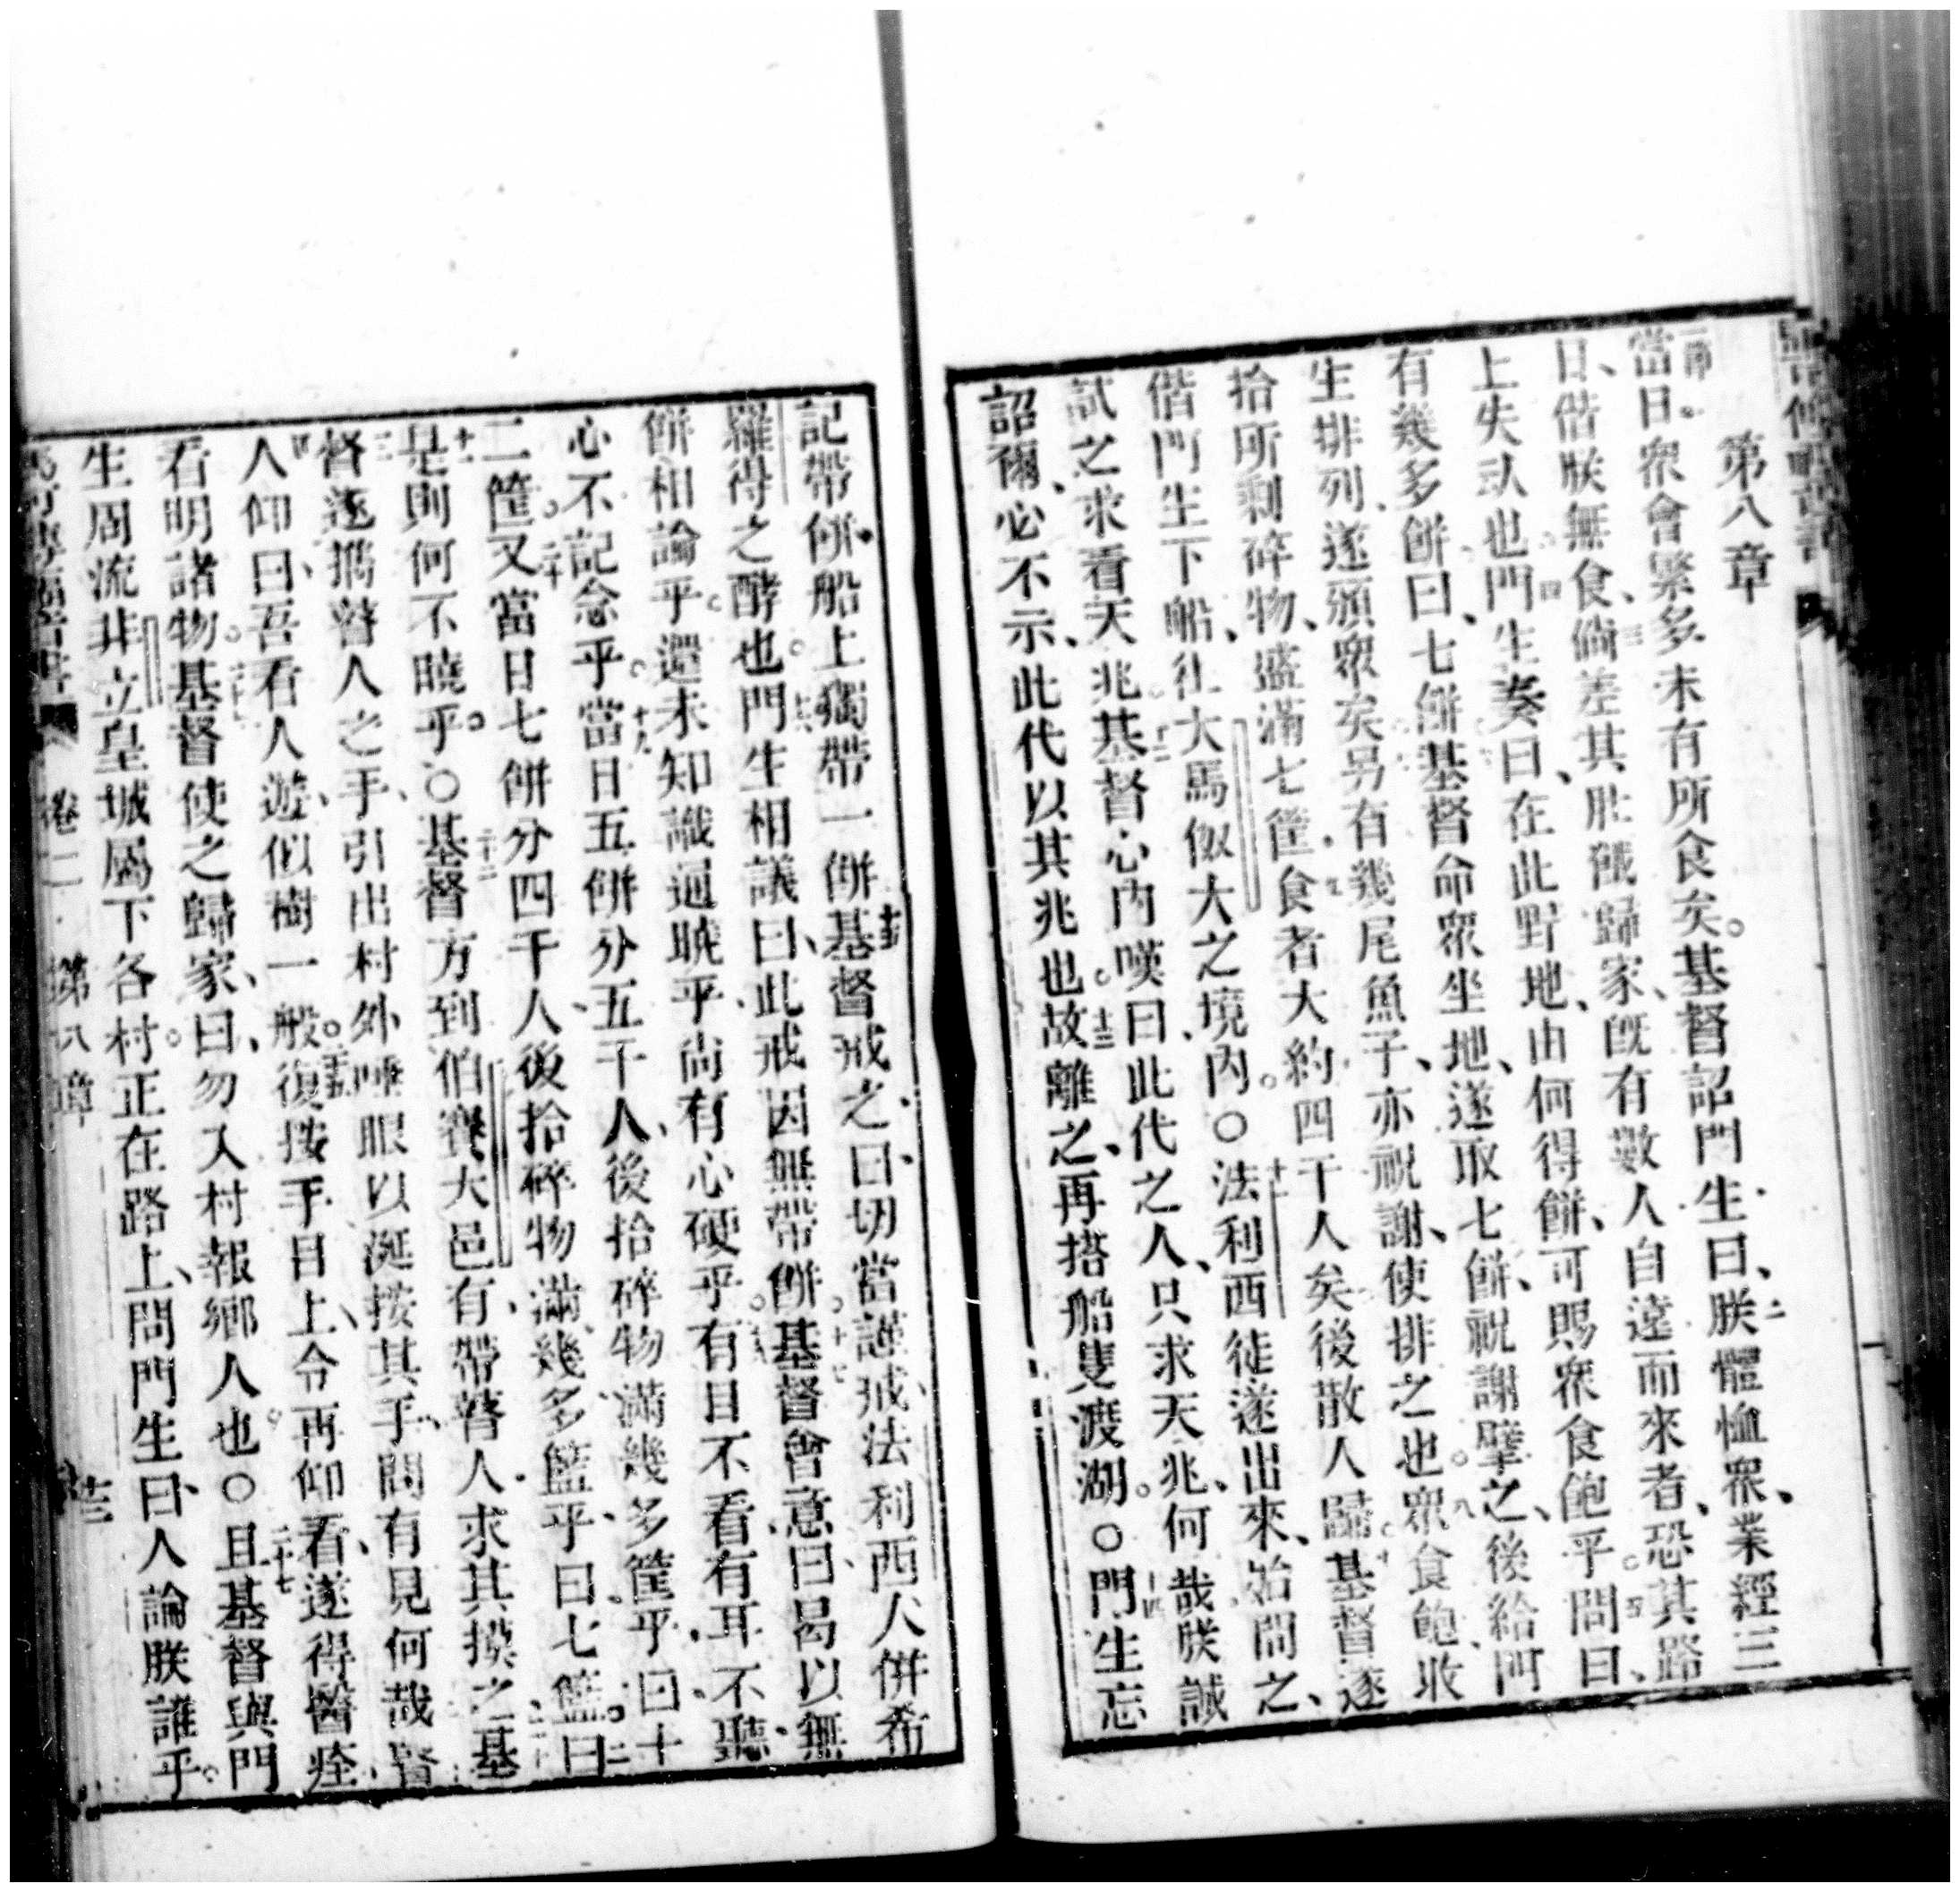 第八章
一節當日眾會緊多未有所食矣。基督詔門生曰、二朕體恤眾、業經三
日、偕朕無食、三倘差其肚餓歸家、既有數人自遠而來者、恐其路
上失𡘊也。四門生奏曰、在此野地、由何得餅、可賜眾食飽乎。五問曰、
有幾多餅曰、七餅基督命眾坐地、遂取七餅、祝謝擘之、後給門
生排列、遂頒眾矣另有幾尾魚子、亦祝謝、使排之也。八眾食飽、收
拾所剩碎物、盛滿七筐九食者大約四千人矣後散人歸。十基督遂
偕門生下船、往大馬倣大之境內。〇十一法利西徒遂出來、始問之、
試之求看天兆。十二基督心內嘆曰、此代之人、只求天兆、何哉朕誠
詔爾、必不示、此代以其兆也。十三故離之、再搭船隻渡湖。〇十四門生忘
記帶餅、船上獨帶一餅十五基督戒之曰、切當謹戒法利西人併希
羅得之酵也。十六門生相議曰、此戒因無帶餅。十七基督會意曰、曷以無
餅相論乎。還未知識通曉乎、尚有心硬乎。十八有目不看有耳不聽
心不記念乎。十九當日五餅分五千人、後拾碎物滿幾多筐乎、曰十
二筐。二十又當日七餅分四千人後拾碎物滿幾多籃乎、曰七籃。二曰
十一是則何不曉乎。〇二十二基督方到伯賽大邑、有帶瞽人求其摸之二十基
三督遂攜瞽人之手、引出村外唾眼以涎按其手、問有見何哉瞽
人仰曰、吾看人遊、似樹一般。二十五復按手目上、令再仰看、遂得醫痊
看明諸物。二十六基督使之歸家、曰、勿入村報鄉人也〇二十七且基督與門
生周流非立皇城屬下各村。正在路上、問門生曰、人論朕誰乎。
卷二 第八章